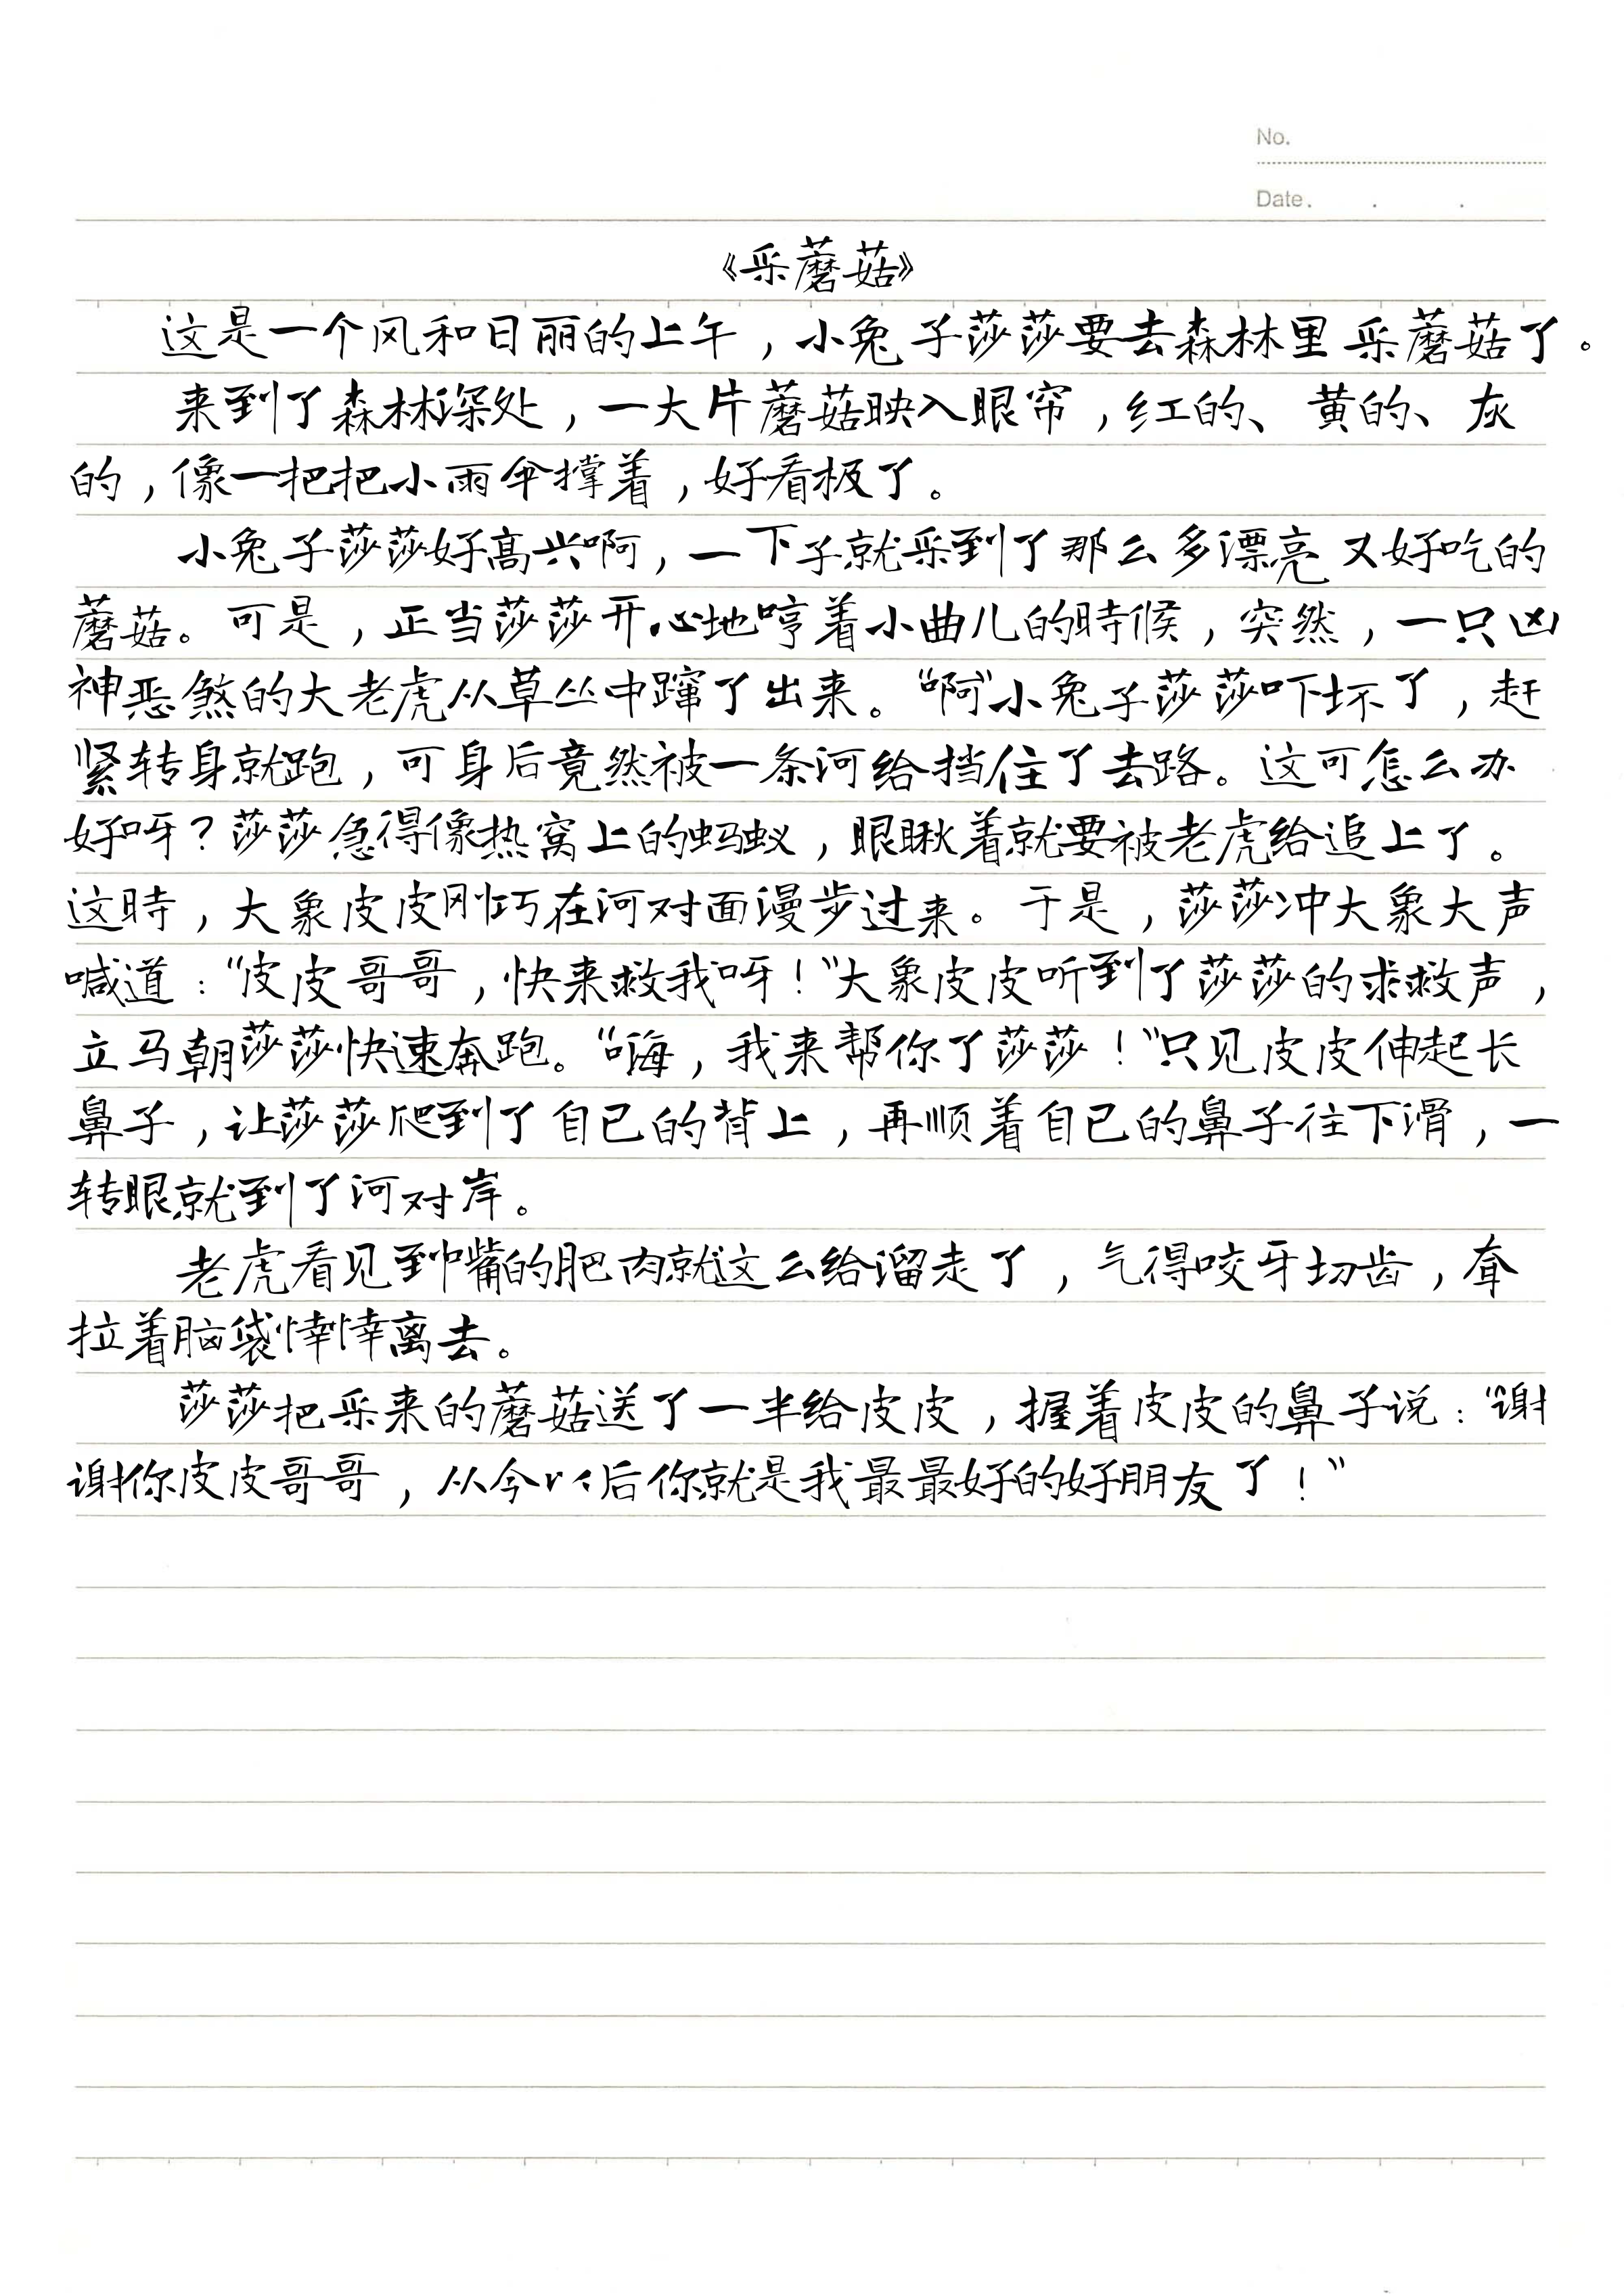 No.
Date.
《采蘑菇》
这是一个风和日丽的上午，小兔子莎莎要去森林里采蘑菇了。
来到了森林深处，一大片蘑菇映入眼帘，红的、黄的、灰
的，像一把把小雨伞撑着，好看极了。
小兔子莎莎好高兴啊，一下子就采到了那么多漂亮又好吃的
蘑菇。可是，正当莎莎开心地哼着小曲儿的時候，突然，一只凶
神恶煞的大老虎从草丛中蹿了出来。“啊”小兔子莎莎吓坏了，赶
紧转身就跑，可身后竟然被一条河给挡住了去路。这可怎么办
好呀？莎莎急得像热窝上的蚂蚁，眼瞅着就要被老虎给追上了。
这時，大象皮皮刚巧在河对面漫步过来。于是，莎莎冲大象大声
喊道：“皮皮哥哥，快来救我呀！”大象皮皮听到了莎莎的求救声，
立马朝莎莎快速奔跑。“嗨，我来帮你了莎莎！”只见皮皮伸起长
鼻子，让莎莎爬到了自己的背上，再顺着自己的鼻子往下滑，一
转眼就到了河对岸。
老虎看见到嘴的肥肉就这么给溜走了，气得咬牙切齿，耷
拉着脑袋悻悻离去。
莎莎把采来的蘑菇送了一半给皮皮，握着皮皮的鼻子说：“谢
谢你皮皮哥哥，从今以后你就是我最最好的好朋友了！”